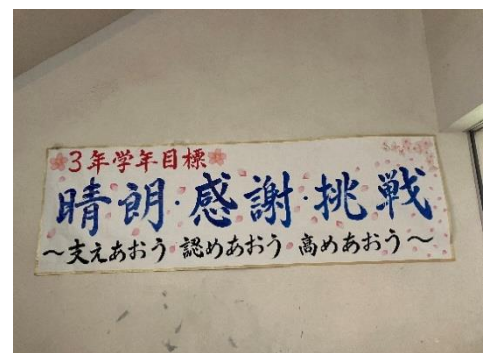 3年学年目標
晴朗・感謝・挑戦
〜支えあおう 認めあおう 高めあおう〜